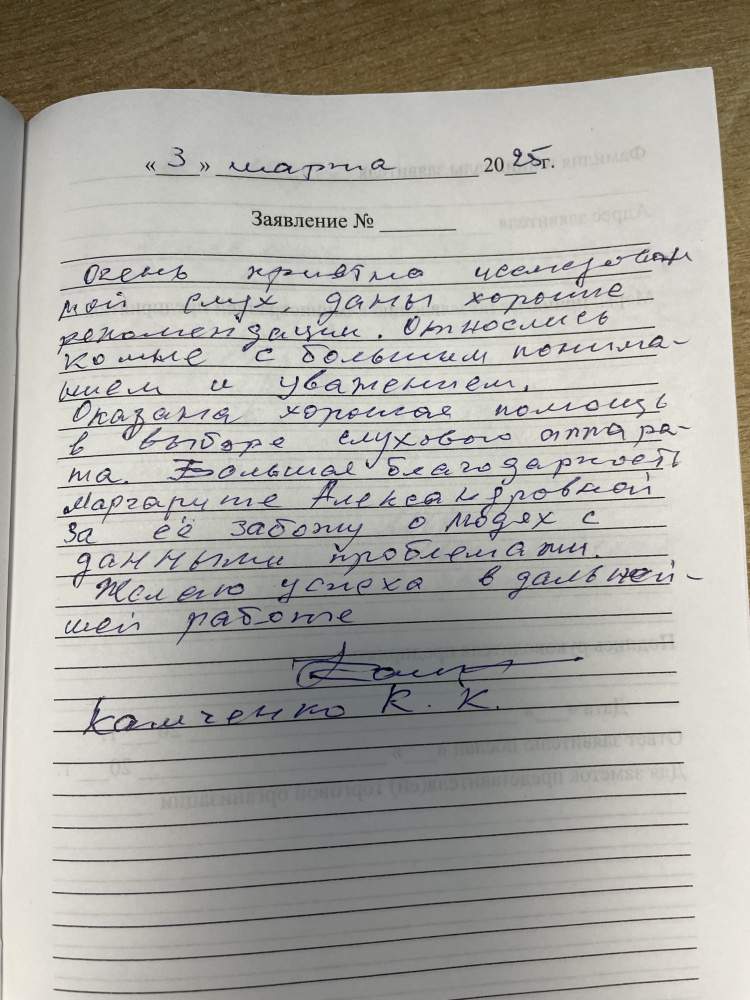 « 3 » марта 2025 г.
Заявление №
Очень приятно исследован
мой слух, даны хорошие
рекомендации. Относились
ко мне с большим понима-
нием и уважением.
Оказана хорошая помощь
в выборе слухового аппара-
та. Большая благодарность
Маргарите Александровной
за её заботу о людях с
данными проблемами.
Желаю успеха в дальней-
шей работе
Камченко К. К.